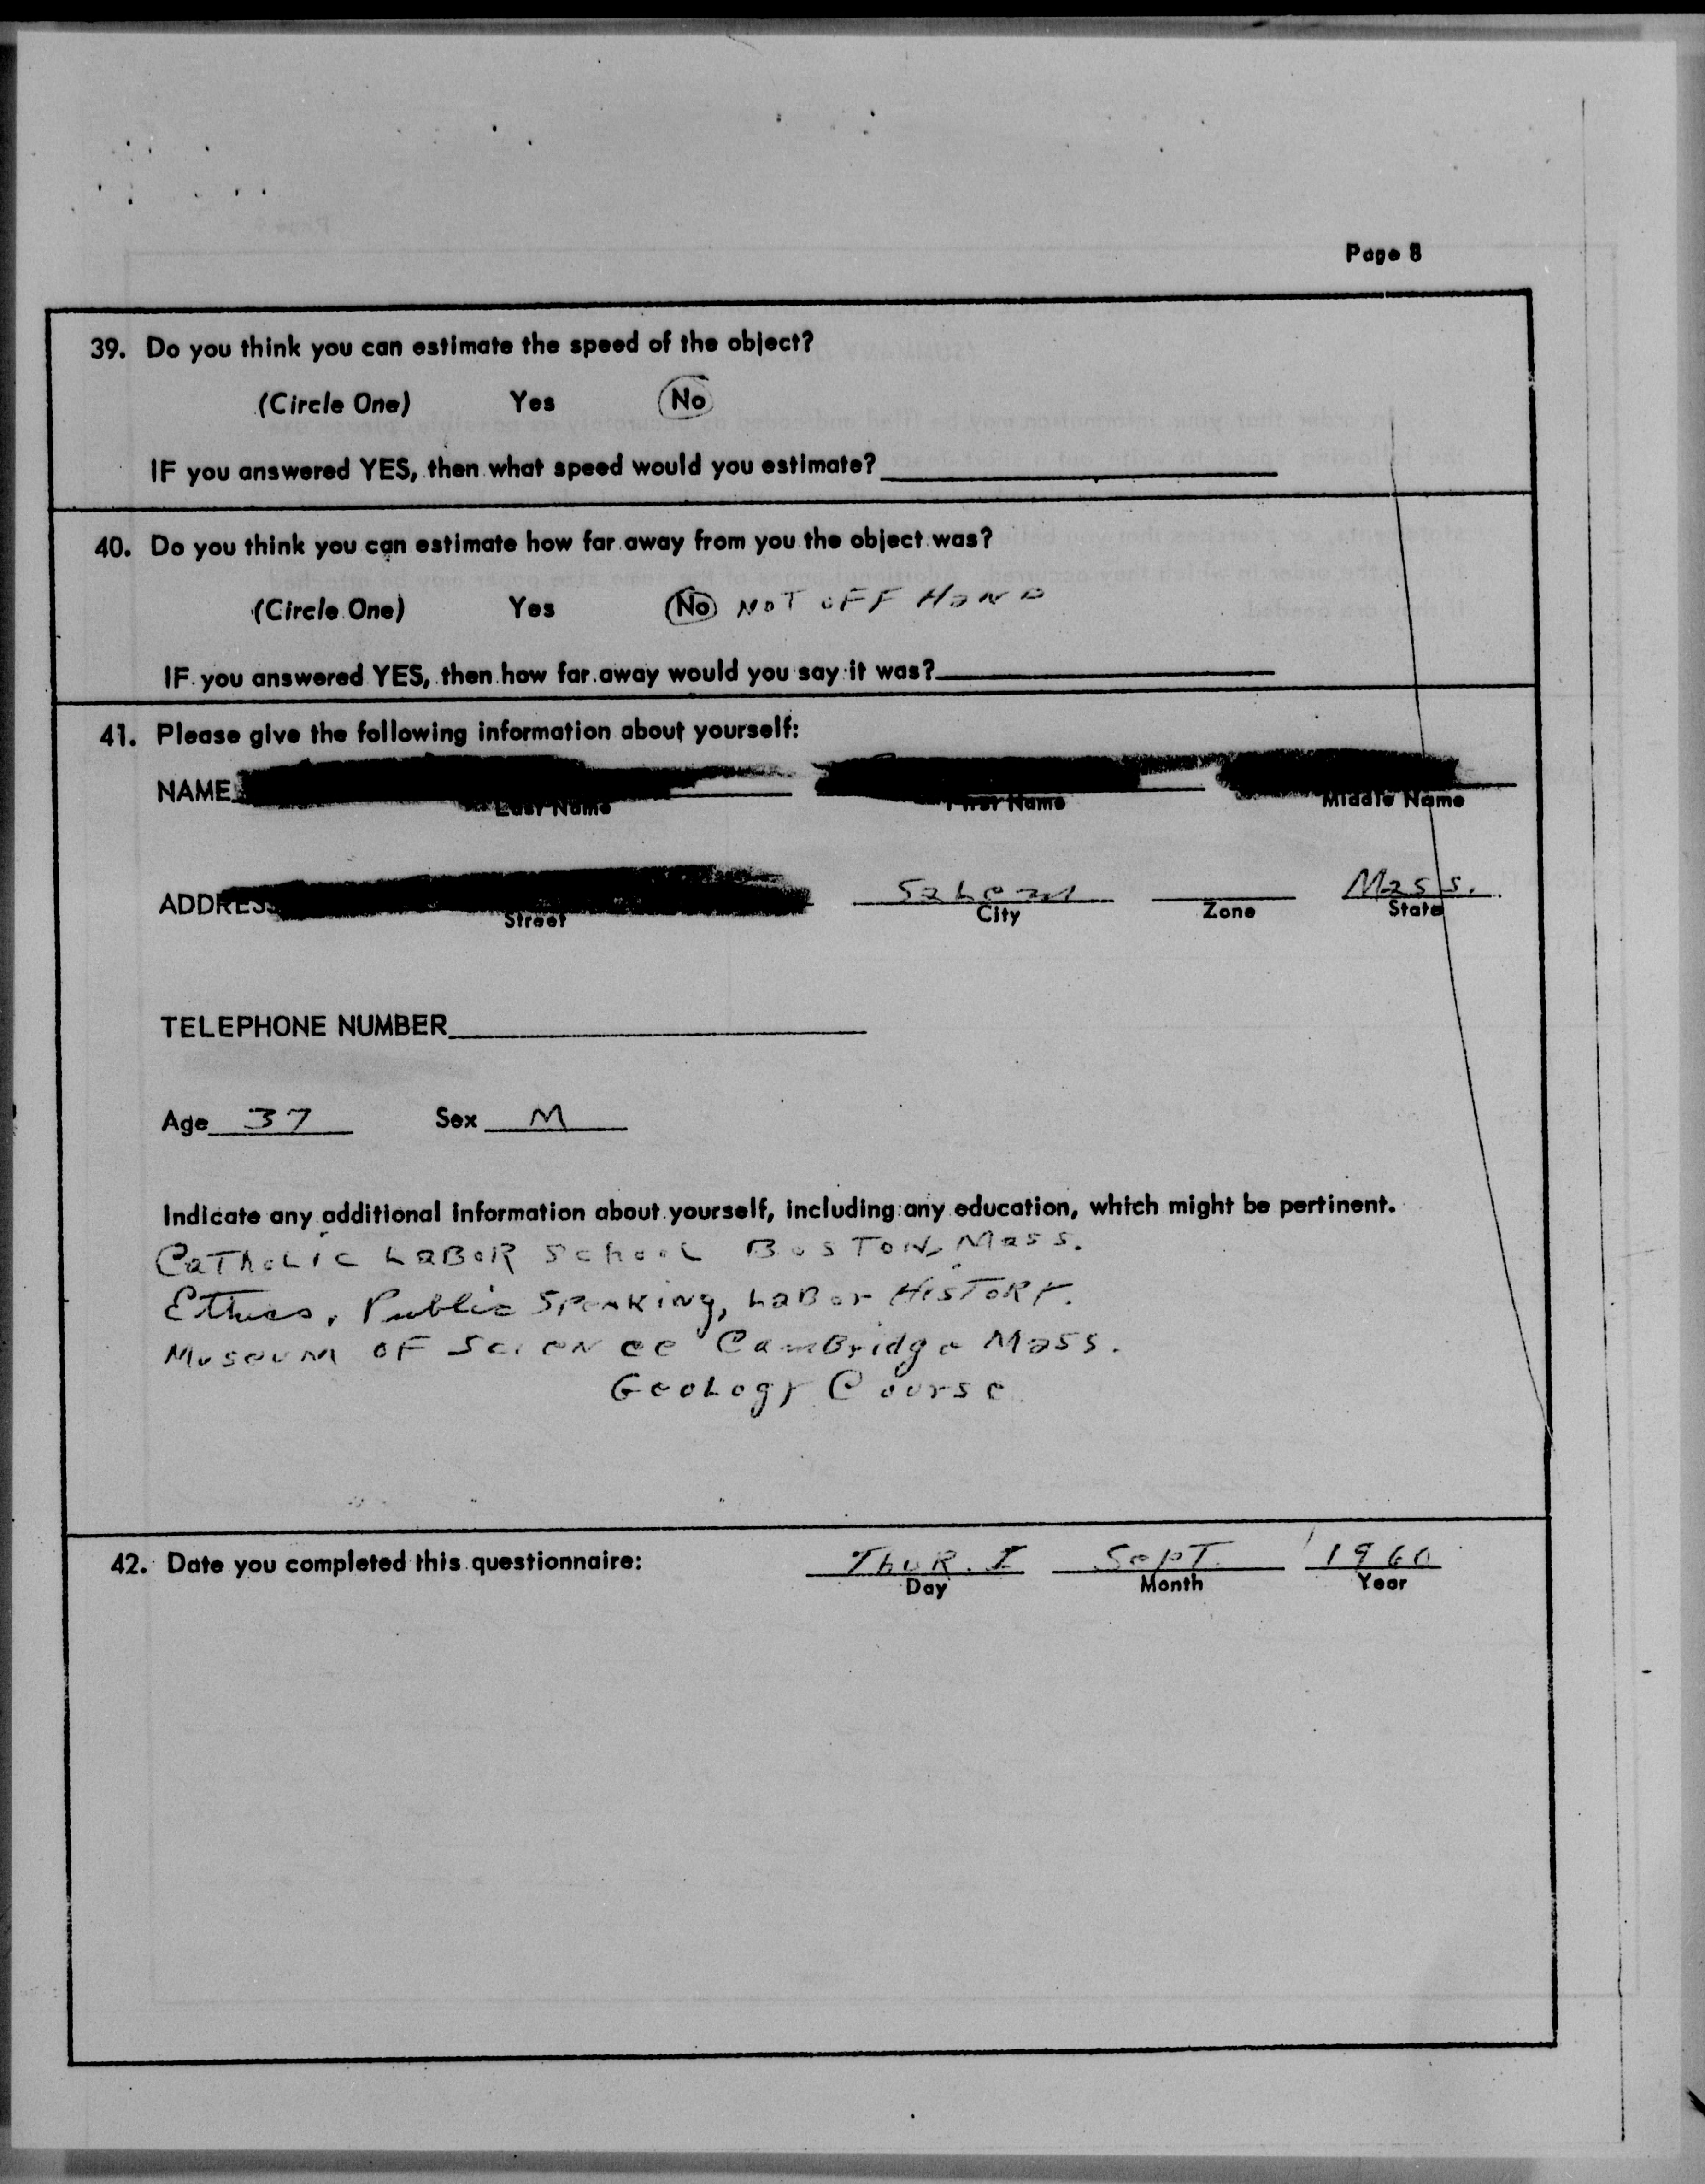 Page 8
39. Do you think you can estimate the speed of the object?
(Circle One) Yes No
IF you answered YES, then what speed would you estimate?
40. Do you think you can estimate how far away from you the object was?
(Circle One) Yes No NOT OFF HAND
IF you answered YES, then how far away would you say it was?
41. Please give the following information about yourself:
NAME
Last Name First Name Middle Name
ADDRESS Salem Mass.
Street City Zone State
TELEPHONE NUMBER
Age 37 Sex M
Indicate any additional information about yourself, including any education, which might be pertinent.
CaTHOLIC LABOR School BOSTON, Mass.
Ethics, Public SPEAKING, LABor HISTORY.
MUSEUM OF SCIENCE CamBridge Mass.
GeoLogy Course
42. Date you completed this questionnaire: THUR. I SepT. 1960
Day Month Year